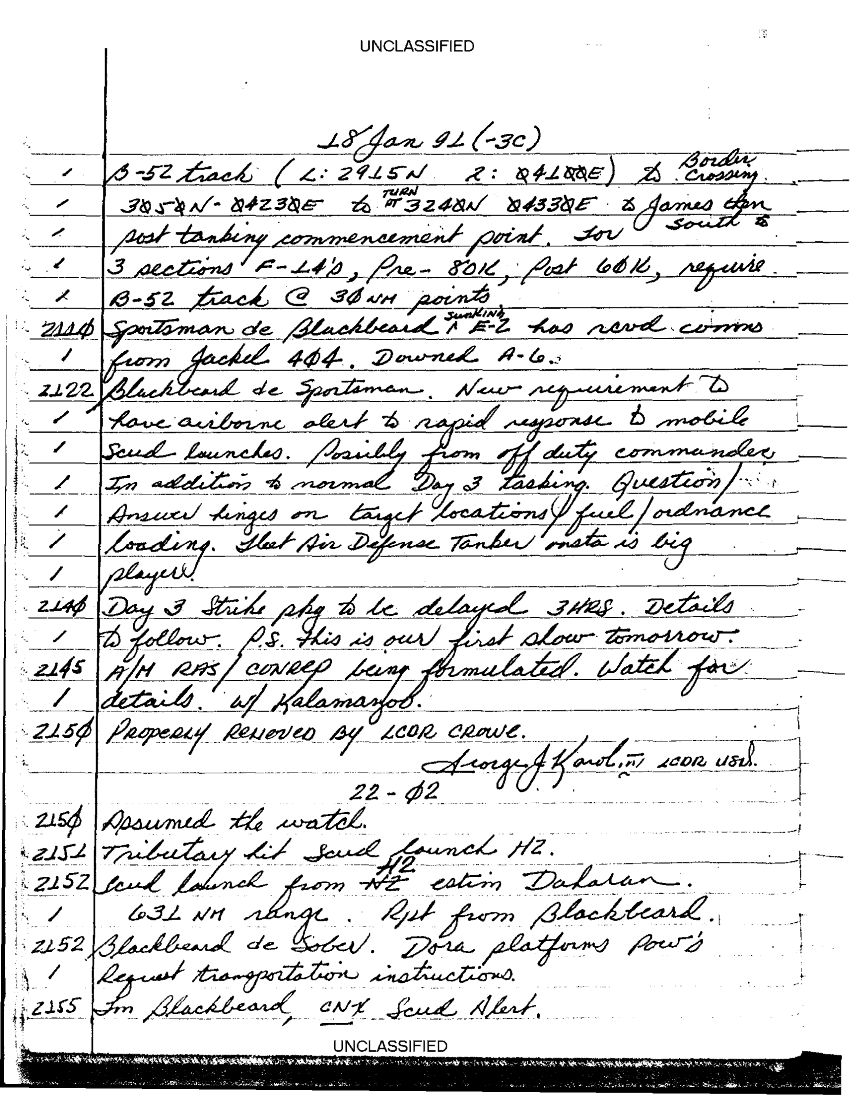 UNCLASSIFIED
18 Jan 91 (-3C)
/ B-52 track (1: 2915N 2: Ø41ØØE) to Border Crossing
/ 3Ø5ØN - Ø423ØE to TURN PT 324ØN Ø433ØE to James then South to
/ post tanking commencement point. For
/ 3 sections F-14's, Pre- 80K, Post 60K, require
/ B-52 track @ 3Ø NM points
211Ø Sportsman de Blackbeard ^ SUNKING E-2 has rcvd comms
/ from Jackel 4Ø4. Downed A-6.
2122 Blackbeard de Sportsman. New requirement to
/ have airborne alert to rapid response to mobile
/ Scud launches. Possibly from off duty commander.
/ In addition to normal Day 3 tasking. Question/
/ Answer hinges on target locations/fuel/ordnance
/ loading. Fleet Air Defense Tanker onsta is big
/ player.
214Ø Day 3 Strike pkg to be delayed 3HRS. Details
/ to follow. P.S. this is our first show tomorrow.
2145 A/M RAS/CONREP being formulated. Watch for
/ details. w/ Kalamazoo.
215Ø PROPERLY RELIEVED BY LCDR CROWE.
George J Karol III LCDR USN.
22 - Ø2
215Ø Assumed the watch.
2151 Tributary hit Scud launch H2.
2152 Scud launch from H2 estim Daharan.
/ 631 NM range. Rpt from Blackbeard.
2152 Blackbeard de Sober. Dora platforms POW's
/ Request transportation instructions.
2155 Fm Blackbeard, CNX Scud Alert.
UNCLASSIFIED